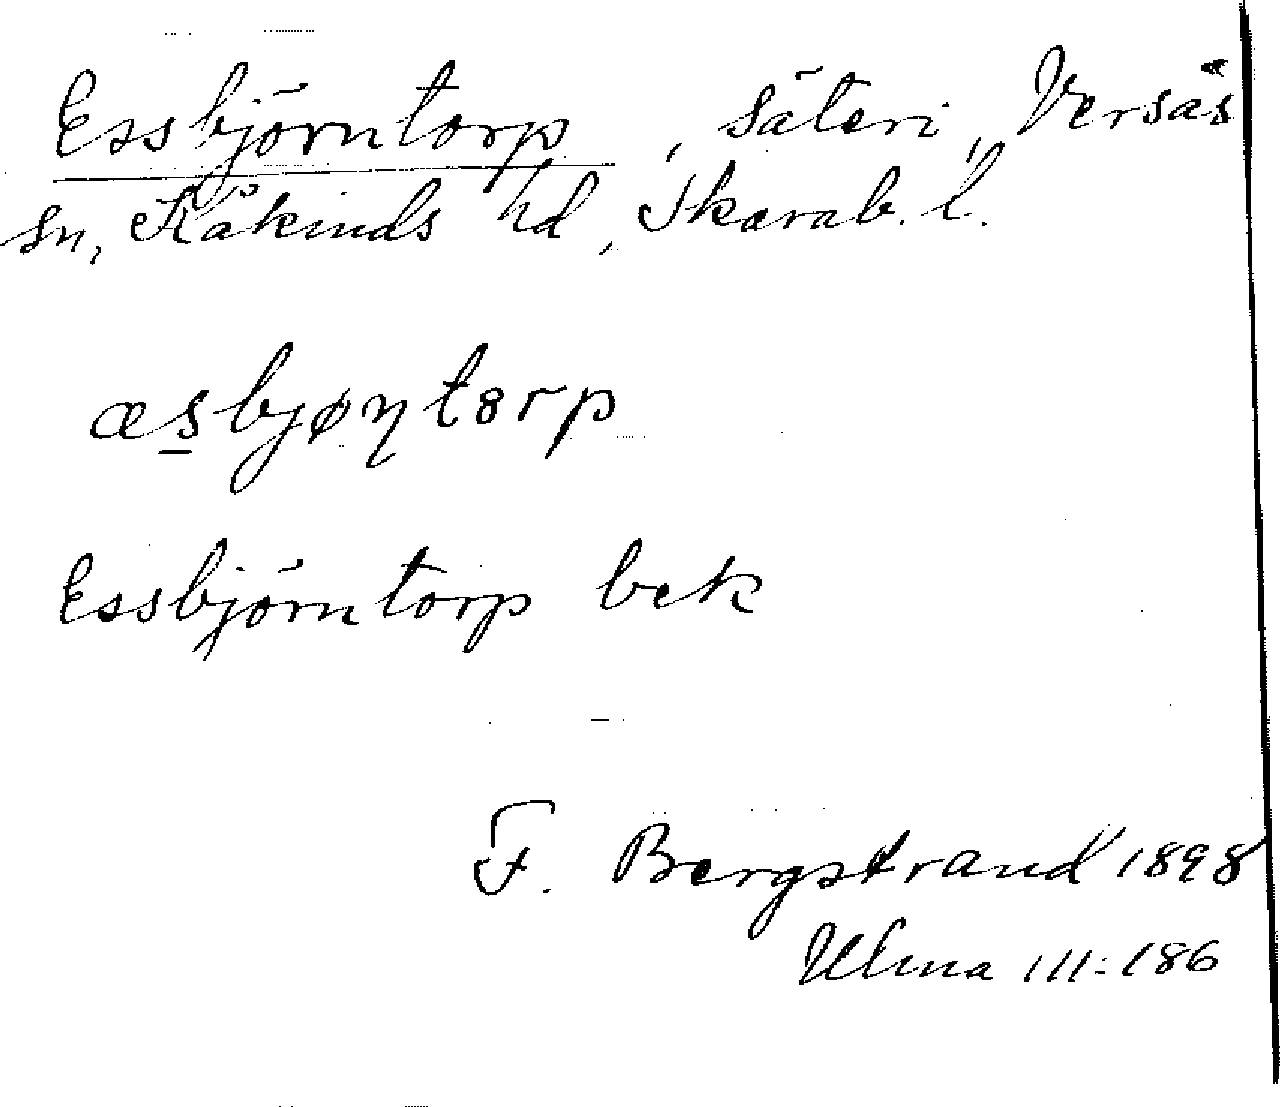 Essbjörntorp, säteri, Versås
sn, Kåkinds hd, Skarab. l.
æsbjøŋtȣrp
Essbjörntorp bek
F. Bergstrand 1898
Ulma 111:186